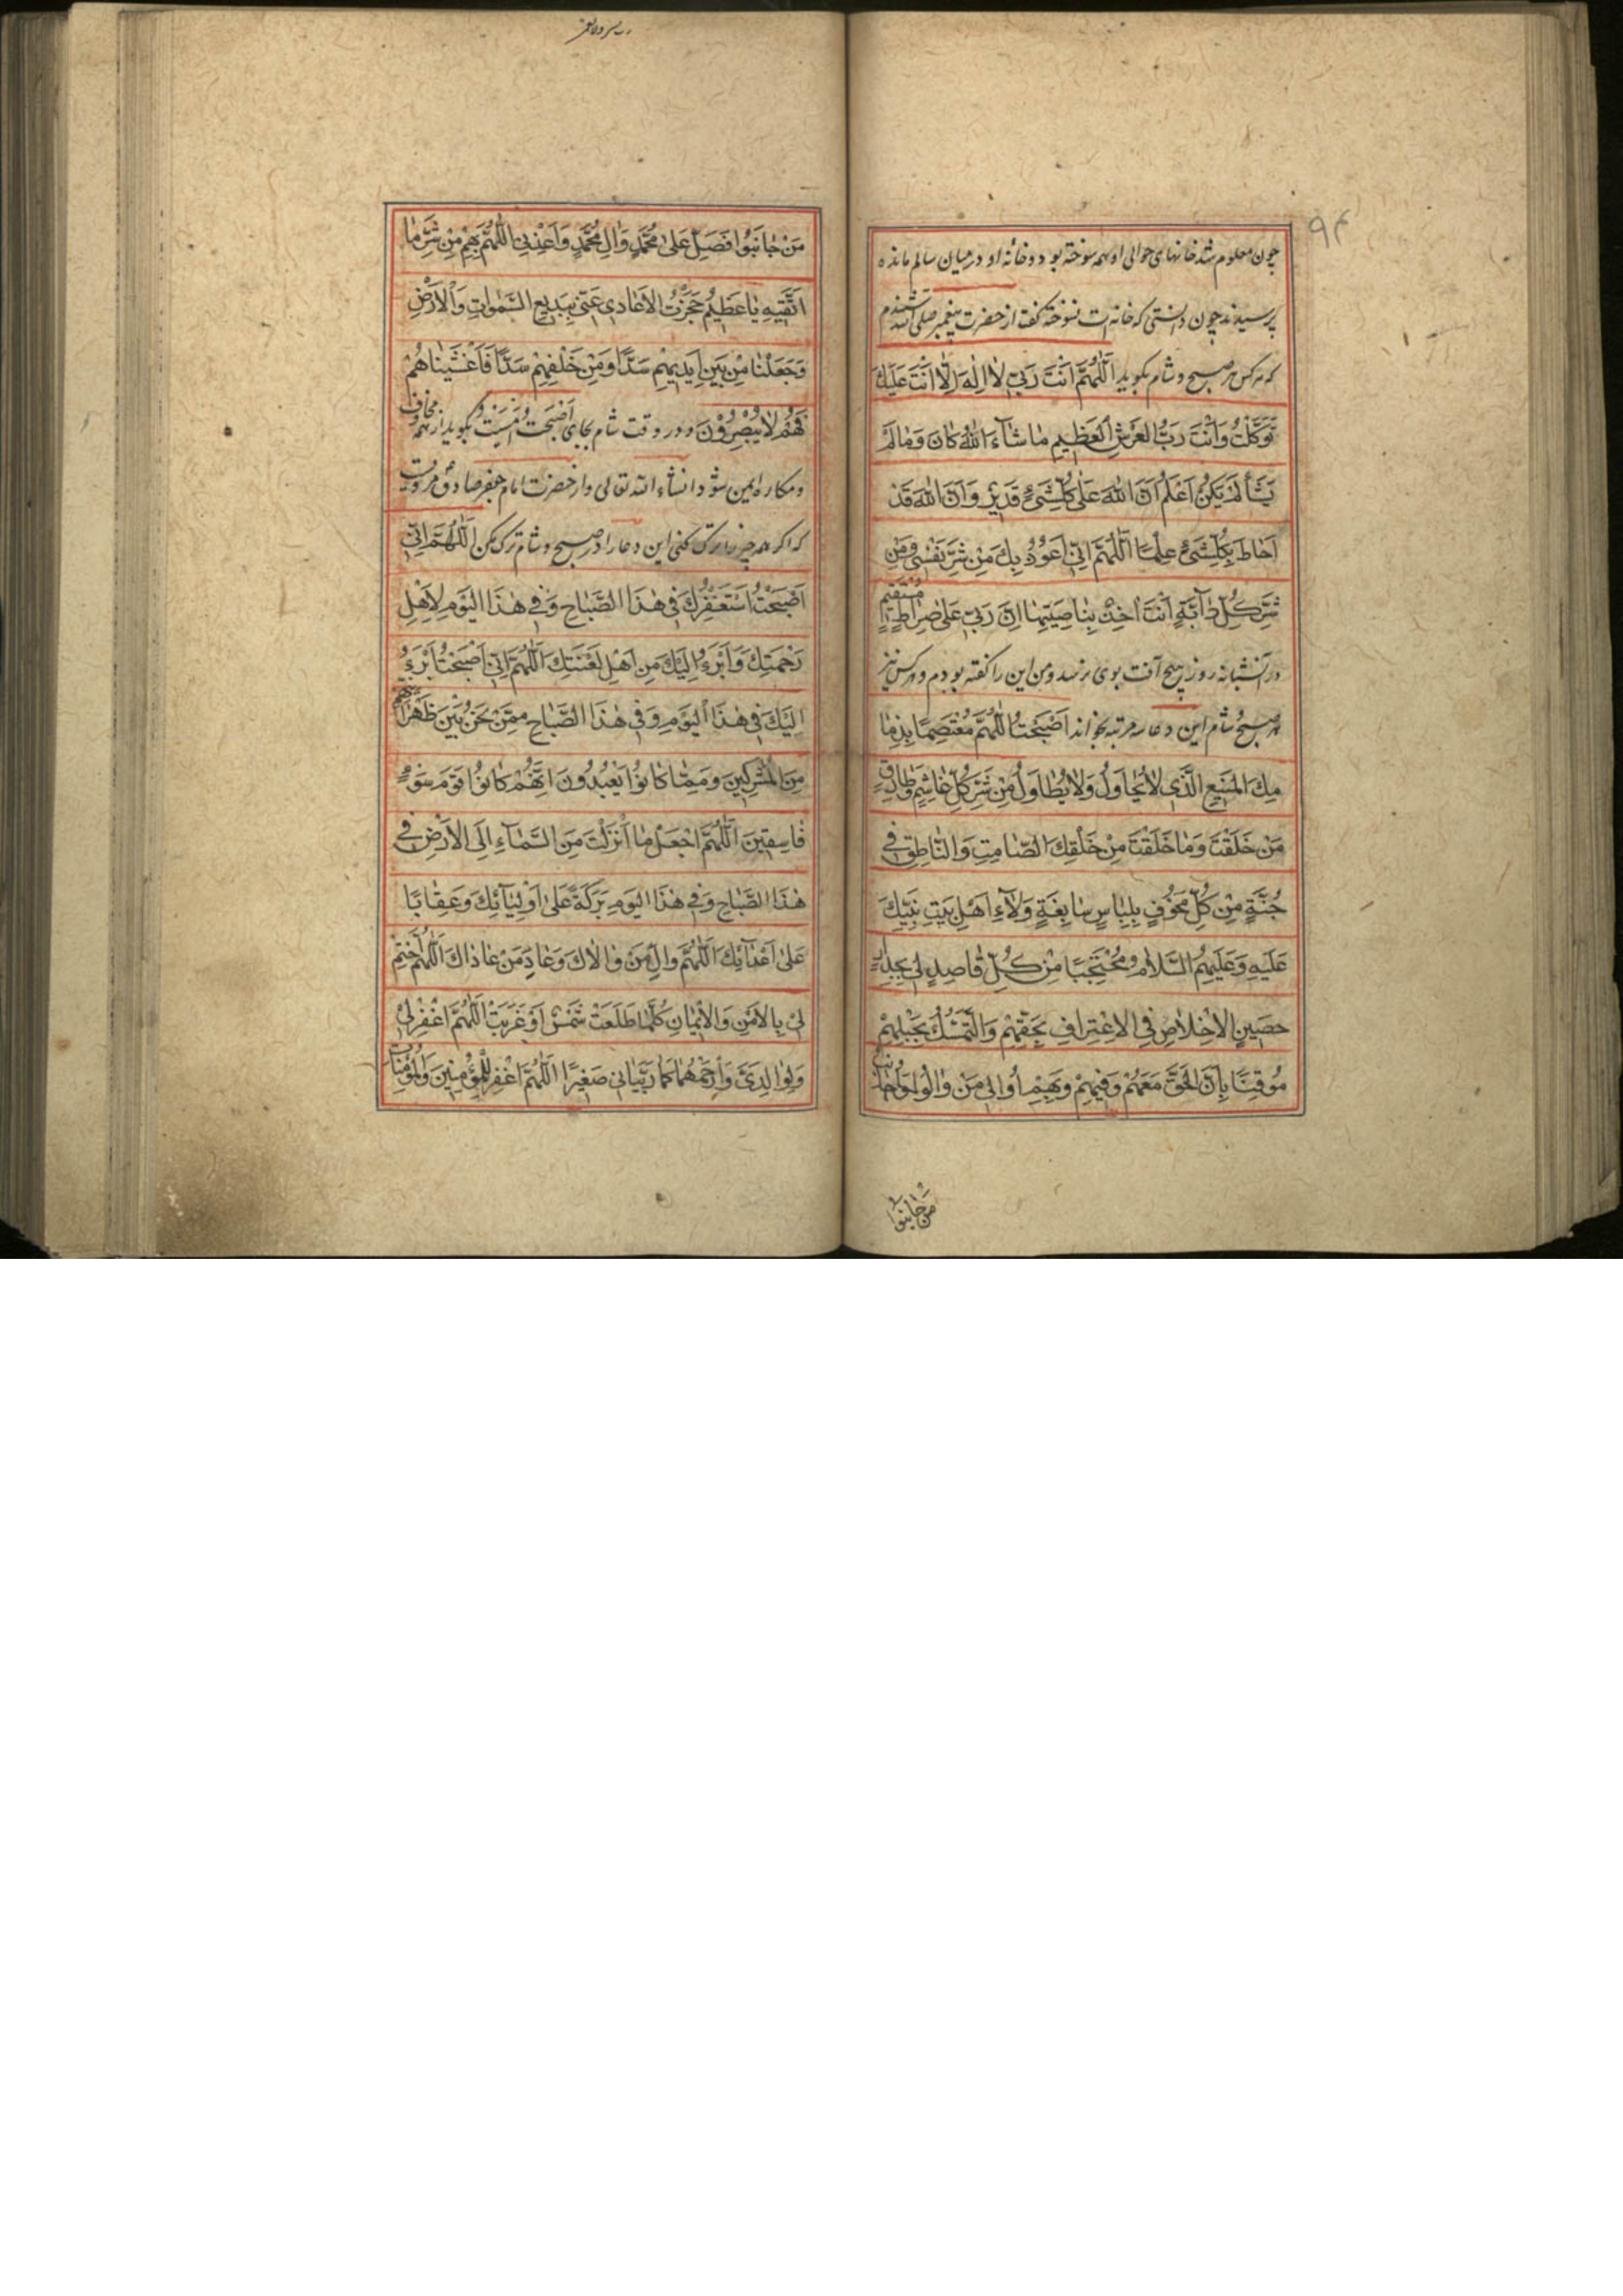 ۹۴
چون معلوم شد خانهای حوالی او همه سوخته بود و خانهٔ او در میان سالم مانده
پرسیدند چون دانستی که خانه‌ات نسوخته گفت از حضرت پیغمبر صلی الله شنیدم
که هر کس هر صبح و شام بکوید اَللّٰهُمَّ اَنْتَ رَبّی لاٰ اِلٰهَ اِلّاٰ اَنْتَ عَلَیْكَ
تَوَكَّلْتُ وَاَنْتَ رَبُّ الْعَرْشِ الْعَظٖیمِ مٰا شٰٓاءَ اللّٰهُ كٰانَ وَمٰالَمْ
یَشَأْ لَمْ یَكُنْ اَعْلَمُ اَنَّ اللّٰهَ عَلٰی كُلِّشَیْءٍ قَدٖیرٌ وَاَنَّ اللّٰهَ قَدْ
اَحٰاطَ بِكُلِّشَیْءٍ عِلْمًا اَللّٰهُمَّ اِنّی اَعُوذُ بِكَ مِنْ شَرِّ نَفْسٖی وَمِنْ
شَرِّ كُلِّ دٰآبَّةٍ اَنْتَ اٰخِذٌ بِنٰاصِیَتِهٰا اِنَّ رَبّٖی عَلٰی صِرٰاطٍ مُسْتَقٖیمٍ
در آن شبانه روز هیچ آفت بوی نرسد و من این را کفته بودم و هر کس نیز
هر صبح و شام این دعا سه مرتبه بخواند اَصْبَحْتُ اللّٰهُمَّ مُعْتَصِمًا بِذِمٰا
مِكَ الْمَنٖیعِ الَّذٖی لاٰ یُحٰاوَلُ وَلاٰ یُطٰاوَلُ مِنْ شَرِّ كُلِّ غٰاشِمٍ وَطٰارِقٍ
مَنْ خَلَقْتَ وَمٰا خَلَقْتَ مِنْ خَلْقِكَ الصّٰامِتِ وَالنّٰاطِقِ فٖی
جُنَّةٍ مِنْ كُلِّ مَخُوفٍ بِلِبٰاسٍ سٰابِغَةٍ وَلاٰءِ اَهْلِ بَیْتِ نَبِیِّكَ
عَلَیْهِ وَعَلَیْهِمُ السَّلاٰمُ مُحْتَجِبًا مِنْ كُلِّ قٰاصِدٍ لٖی بِجِدٰارٍ
حَصٖینٍ الْاِخْلاٰصِ فِی الْاِعْتِرٰافِ بِحَقِّهِمْ وَالتَّمَسُّكِ بِحَبْلِهِمْ
مُوقِنًا بِاَنَّ الْحَقَّ مَعَهُمْ وَفٖیهِمْ وَبِهِمْ اُوٰالٖی مَنْ وٰالَوْا وَاُجٰانِبُ
مَنْ جٰانَبُوا
مَنْ جٰانَبُوا فَصَلِّ عَلٰی مُحَمَّدٍ وَاٰلِ مُحَمَّدٍ وَاَعِذْنٖی اللّٰهُمَّ بِهِمْ مِنْ شَرِّ مٰا
اَتَّقٖیهِ یٰا عَظٖیمُ حَجَزْتُ الْاَعٰادِیَ عَنّٖی بِبَدٖیعِ السَّمٰوٰاتِ وَالْاَرْضِ
وَجَعَلْنٰا مِنْ بَیْنِ اَیْدٖیهِمْ سَدًّا وَمِنْ خَلْفِهِمْ سَدًّا فَاَغْشَیْنٰاهُمْ
فَهُمْ لاٰ یُبْصِرُونَ و در وقت شام بجای اَصْبَحْتُ اَمْسَیْتُ بکوید از همه مخاوف
و مکاره ایمن شود انشاء الله تعالی و از حضرت امام جعفر صادق مرویست
که اکر همه چیز را ترک کنی این دعا را در صبح و شام ترک مکن اَللّٰهُمَّ اِنّٖی
اَصْبَحْتُ اَسْتَغْفِرُكَ فٖی هٰذَا الصَّبٰاحِ وَفٖی هٰذَا الْیَوْمِ لِاَهْلِ
رَحْمَتِكَ وَاَبْرَءُ اِلَیْكَ مِنْ اَهْلِ لَعْنَتِكَ اَللّٰهُمَّ اِنّٖی اَصْبَحْتُ اَبْرَءُ
اِلَیْكَ فٖی هٰذَا الْیَوْمِ وَفٖی هٰذَا الصَّبٰاحِ مِمَّنْ نَحْنُ بَیْنَ ظَهْرٰانَیْهِمْ
مِنَ الْمُشْرِكٖینَ وَمِمّٰا كٰانُوا یَعْبُدُونَ اِنَّهُمْ كٰانُوا قَوْمَ سَوْءٍ
فٰاسِقٖینَ اَللّٰهُمَّ اجْعَلْ مٰا اَنْزَلْتَ مِنَ السَّمٰآءِ اِلَی الْاَرْضِ فٖی
هٰذَا الصَّبٰاحِ وَفٖی هٰذَا الْیَوْمِ بَرَكَةً عَلٰی اَوْلِیٰٓائِكَ وَعِقٰابًا
عَلٰی اَعْدٰٓائِكَ اَللّٰهُمَّ وٰالِ مَنْ وٰالاٰكَ وَعٰادِ مَنْ عٰادٰاكَ اَللّٰهُمَّ اخْتِمْ
لٖی بِالْاَمْنِ وَالْاٖیمٰانِ كُلَّمٰا طَلَعَتْ شَمْسٌ اَوْ غَرَبَتْ اَللّٰهُمَّ اغْفِرْ لٖی
وَلِوٰالِدَیَّ وَارْحَمْهُمٰا كَمٰا رَبَّیٰانٖی صَغٖیرًا اَللّٰهُمَّ اغْفِرْ لِلْمُؤْمِنٖینَ وَالْمُؤْمِنٰاتِ